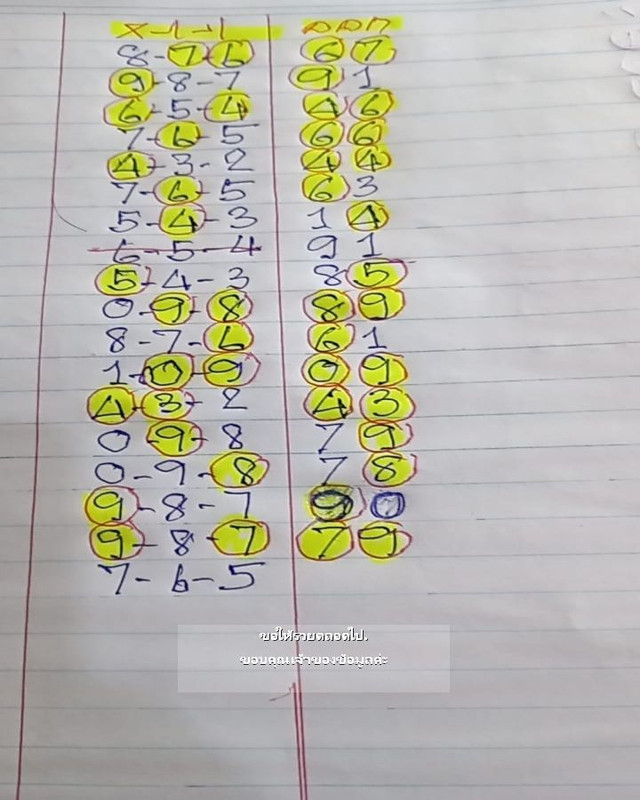 X-1-1 ออก
8-7-6 67
9-8-7 91
6-5-4 46
7-6-5 66
4-3-2 44
7-6-5 63
5-4-3 14
6-5-4 91
5-4-3 85
0-9-8 89
8-7-6 61
1-0-9 09
4-3-2 43
0-9-8 79
0-9-8 78
9-8-7 90
9-8-7 79
7-6-5
ขอให้รวยตลอดไป.
ขอบคุณเจ้าของข้อมูลค่ะ